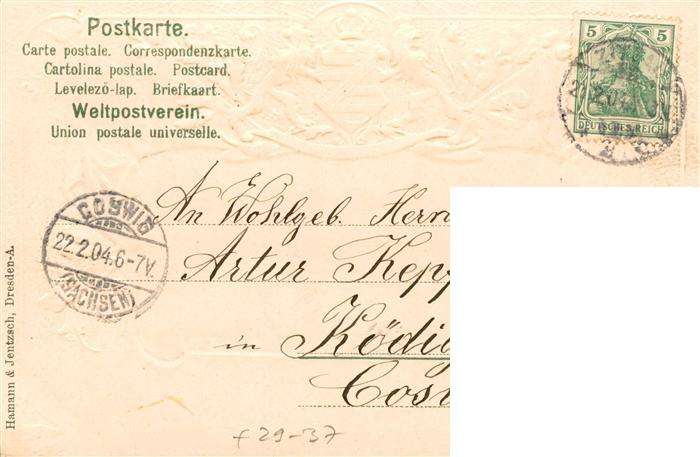 Postkarte.
Carte postale. Correspondenzkarte.
Cartolina postale. Postcard.
Levelező-lap. Briefkaart.
Weltpostverein.
Union postale universelle.
5 5
DEUTSCHES REICH
COSWIG
22.2.04.6-7V.
(SACHSEN)
An Wohlgeb. Herrn
Artur Kepp
in Ködig
Cos
Hamann & Jentzsch, Dresden-A.
f 29-37